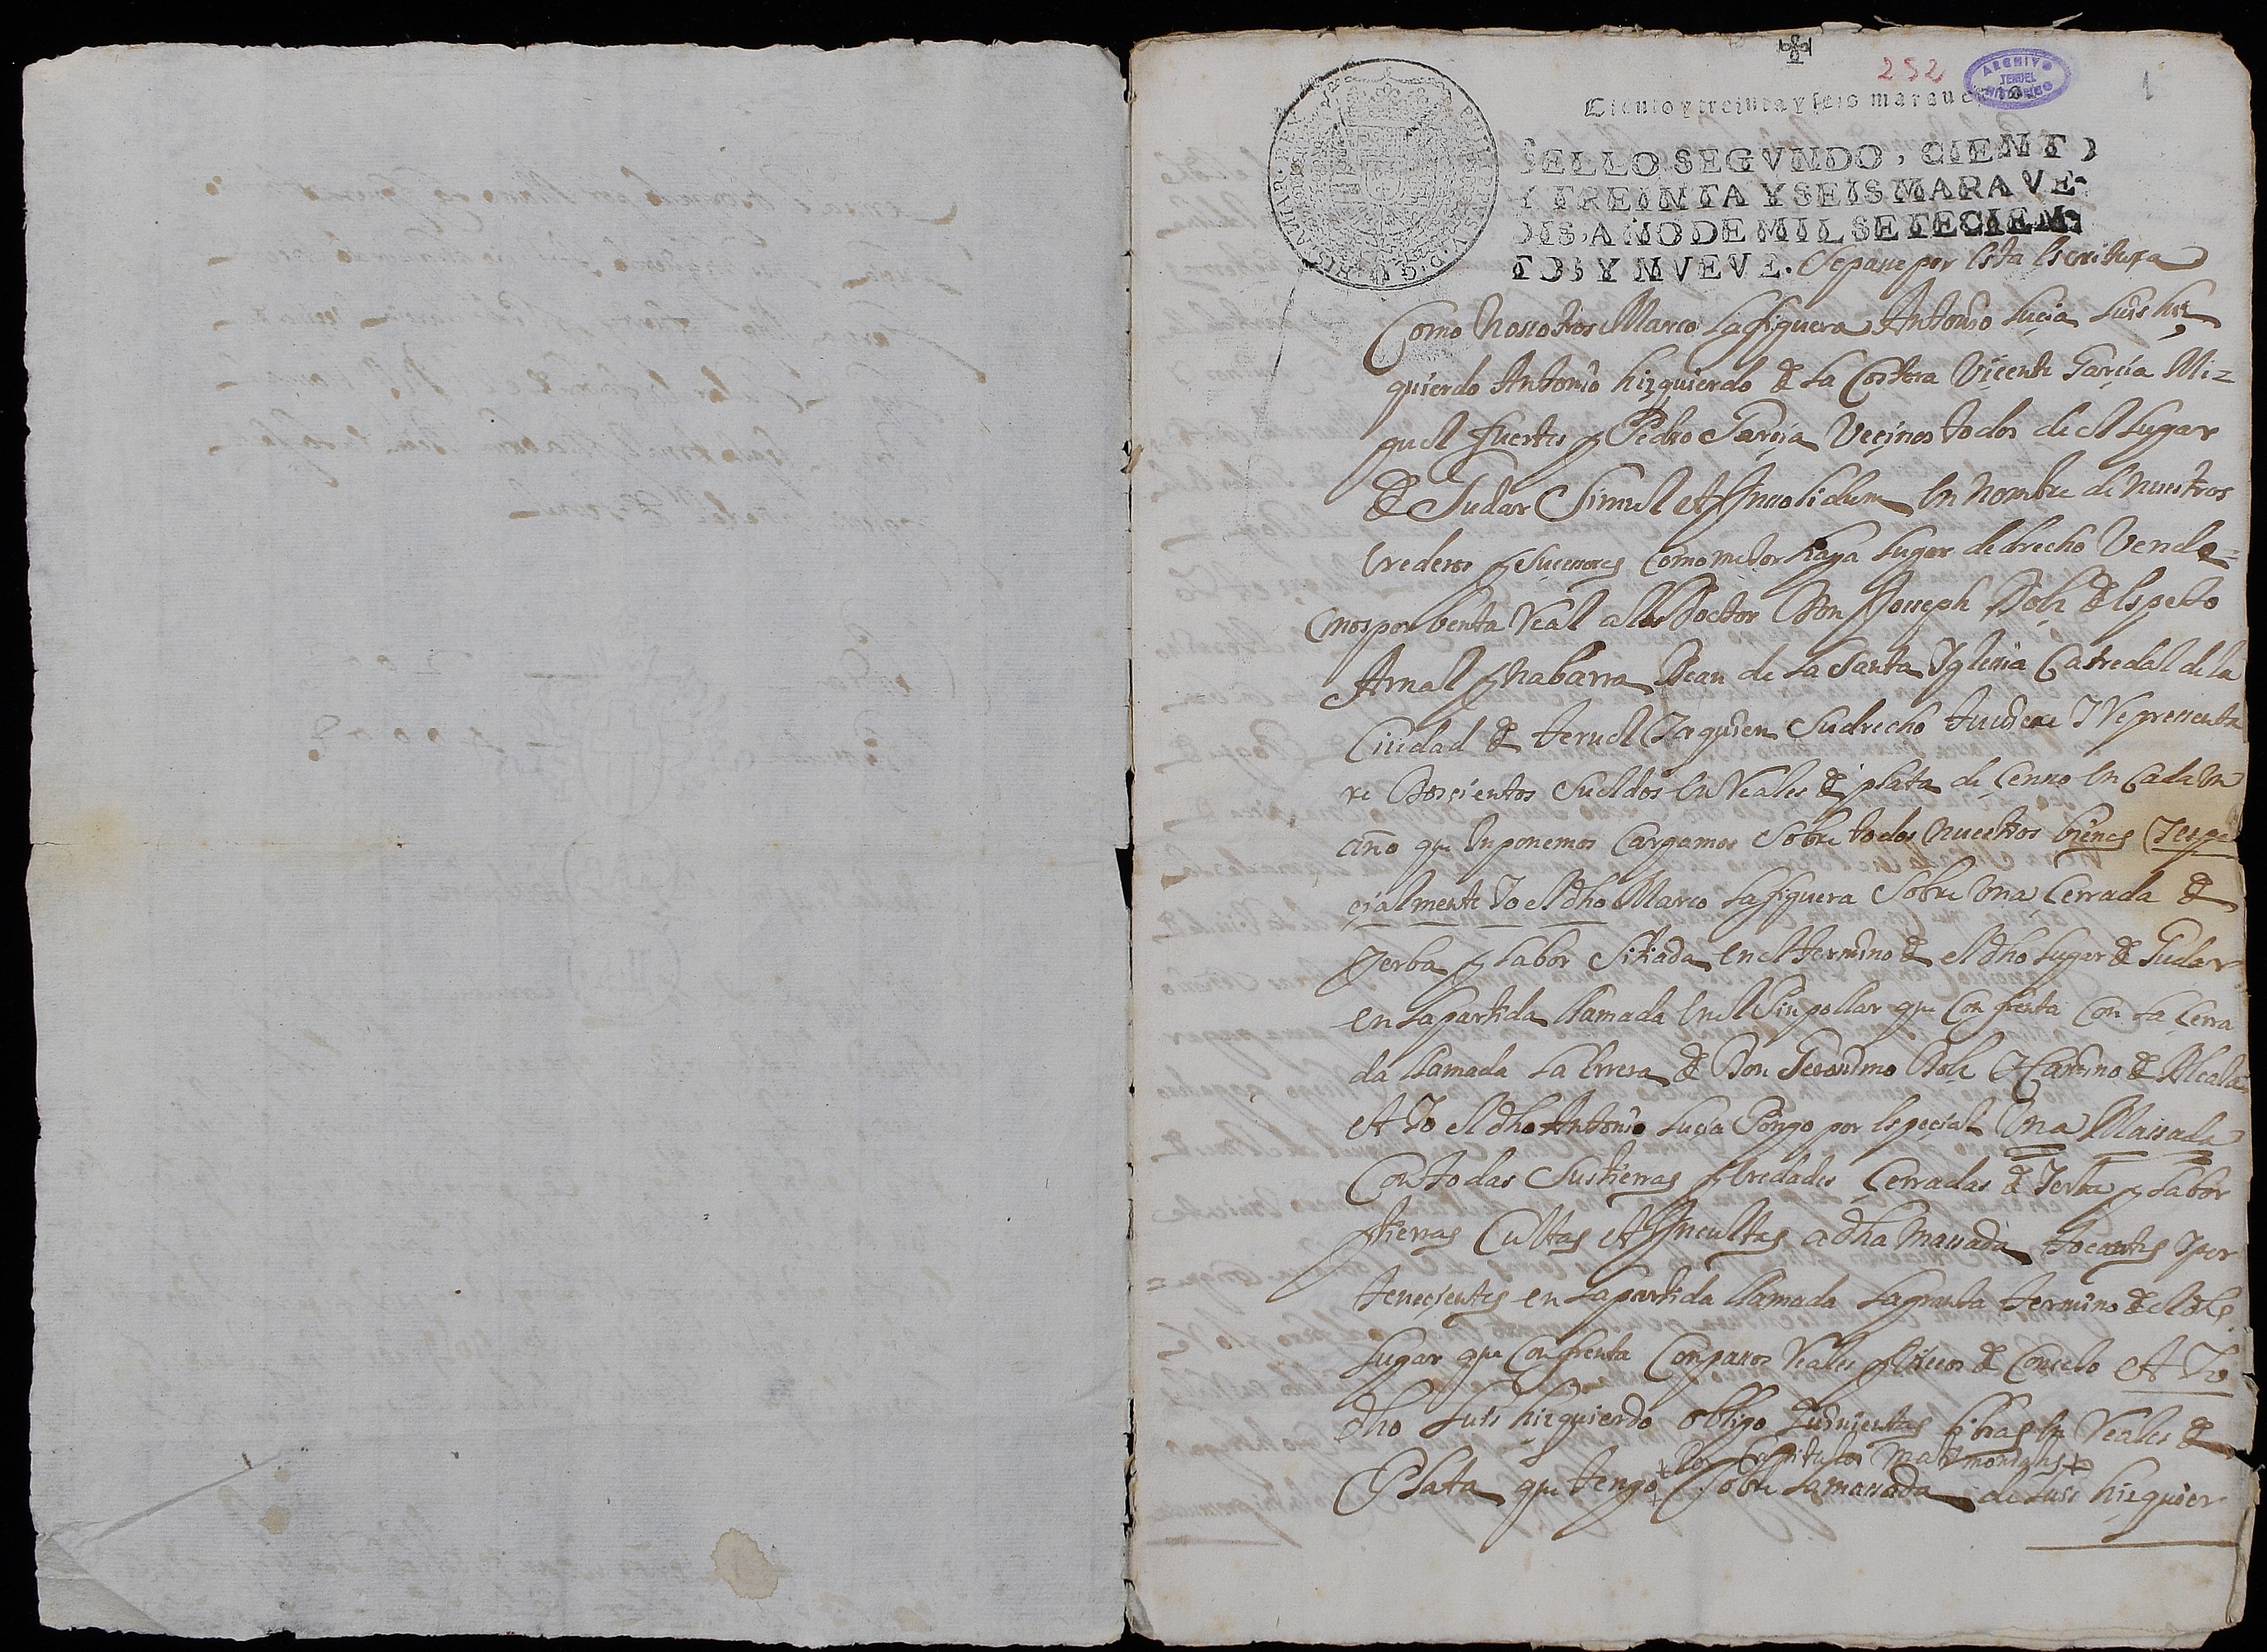 252
ARCHIVO
TERUEL
HISTORICO
1
Ciento y treinta y seis maraued
SELLO SEGVNDO, CIENTO
Y TREINTA Y SEIS MARAVE-
DIS, AÑO DE MIL SETECIEN-
TOS, Y NVEVE. Sepase por esta escritura
Como Nosotros Marco Lafiguera Antonio Lucia Luis hiz
quierdo Antonio hizquierdo de la Costera Vicente Garcia Mi-
guel fuertes y Pedro Garcia Vecinos todos de el Lugar
de Gudar Simul et Insolidum en nombre de nuestros
erederos y sucesores como mejor haya lugar de drecho Vende-
mos por benta Real a el Doctor Don Joseph Dolz de Espejo
Arnal y Nabarra Dean de la Santa Iglesia Catredal de la
Ciudad de teruel y a quien su drecho tuviere y Representa
re Doscientos sueldos en Reales de plata de censo en cada un
año que Inponemos Cargamos sobre todos nuestros bienes y espe
cialmente Yo el dho Marco Lafiguera sobre una Cerrada de
Yerba y labor sitiada en el termino de el dho lugar de Gudar
en la partida llamada en el Sinpollar que confrenta con la Cerra
da llamada la de Don Geronimo Dolz y Camino de Alcala
et Yo el dho Antonio Lucia Pongo por especial Una Massada
Con todas sus tierras y eredades Cerradas de Yerba y labor
tierras Cultas et Incultas a dha Massada tocantes y per
tenecientes en la partida llamada termino de el dho
Lugar que confrenta con pasos Reales y de Concejo et Yo
dho Luis hizquierdo obligo Quinientas libras en Reales de
+ Por Capitulos Matrimoniales +
Plata que tengo + sobre la massada de Luis hizquier